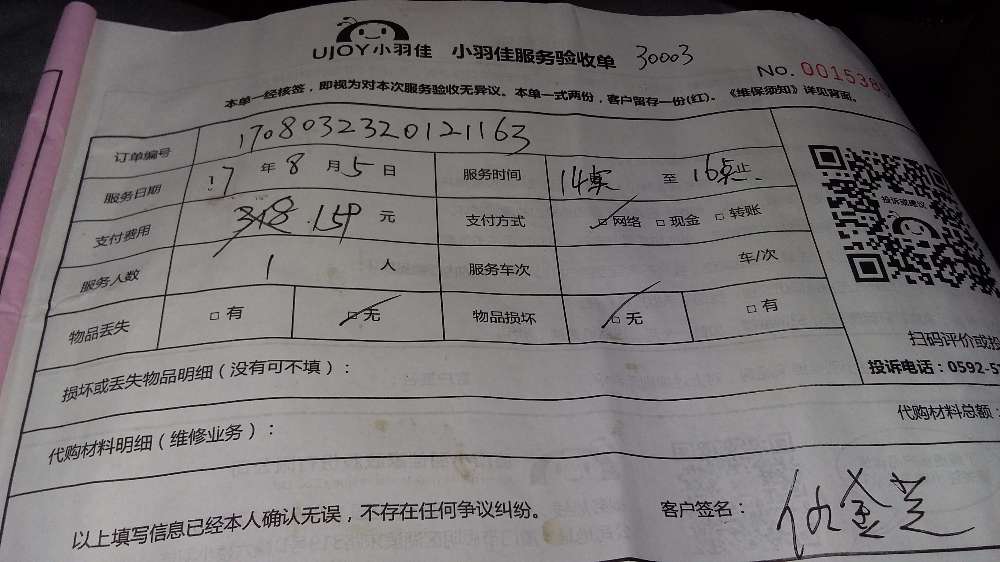 UJOY小羽佳 小羽佳服务验收单 30003
NO. 001538
本单一经核签，即视为对本次服务验收无异议。本单一式两份，客户留存一份(红)。《维保须知》详见背面。
订单编号 1708032320121163
服务日期 17 年 8 月 5 日 服务时间 14点 至 16点止
支付费用 元 支付方式 网络 现金 转账
服务人数 1 人 服务车次 车/次
物品丢失 有 无 物品损坏 无 有
投诉或建议
扫码评价或投
投诉电话：0592-5
损坏或丢失物品明细（没有可不填）：
代购材料总额：
代购材料明细（维修业务）：
以上填写信息已经本人确认无误，不存在任何争议纠纷。 客户签名：